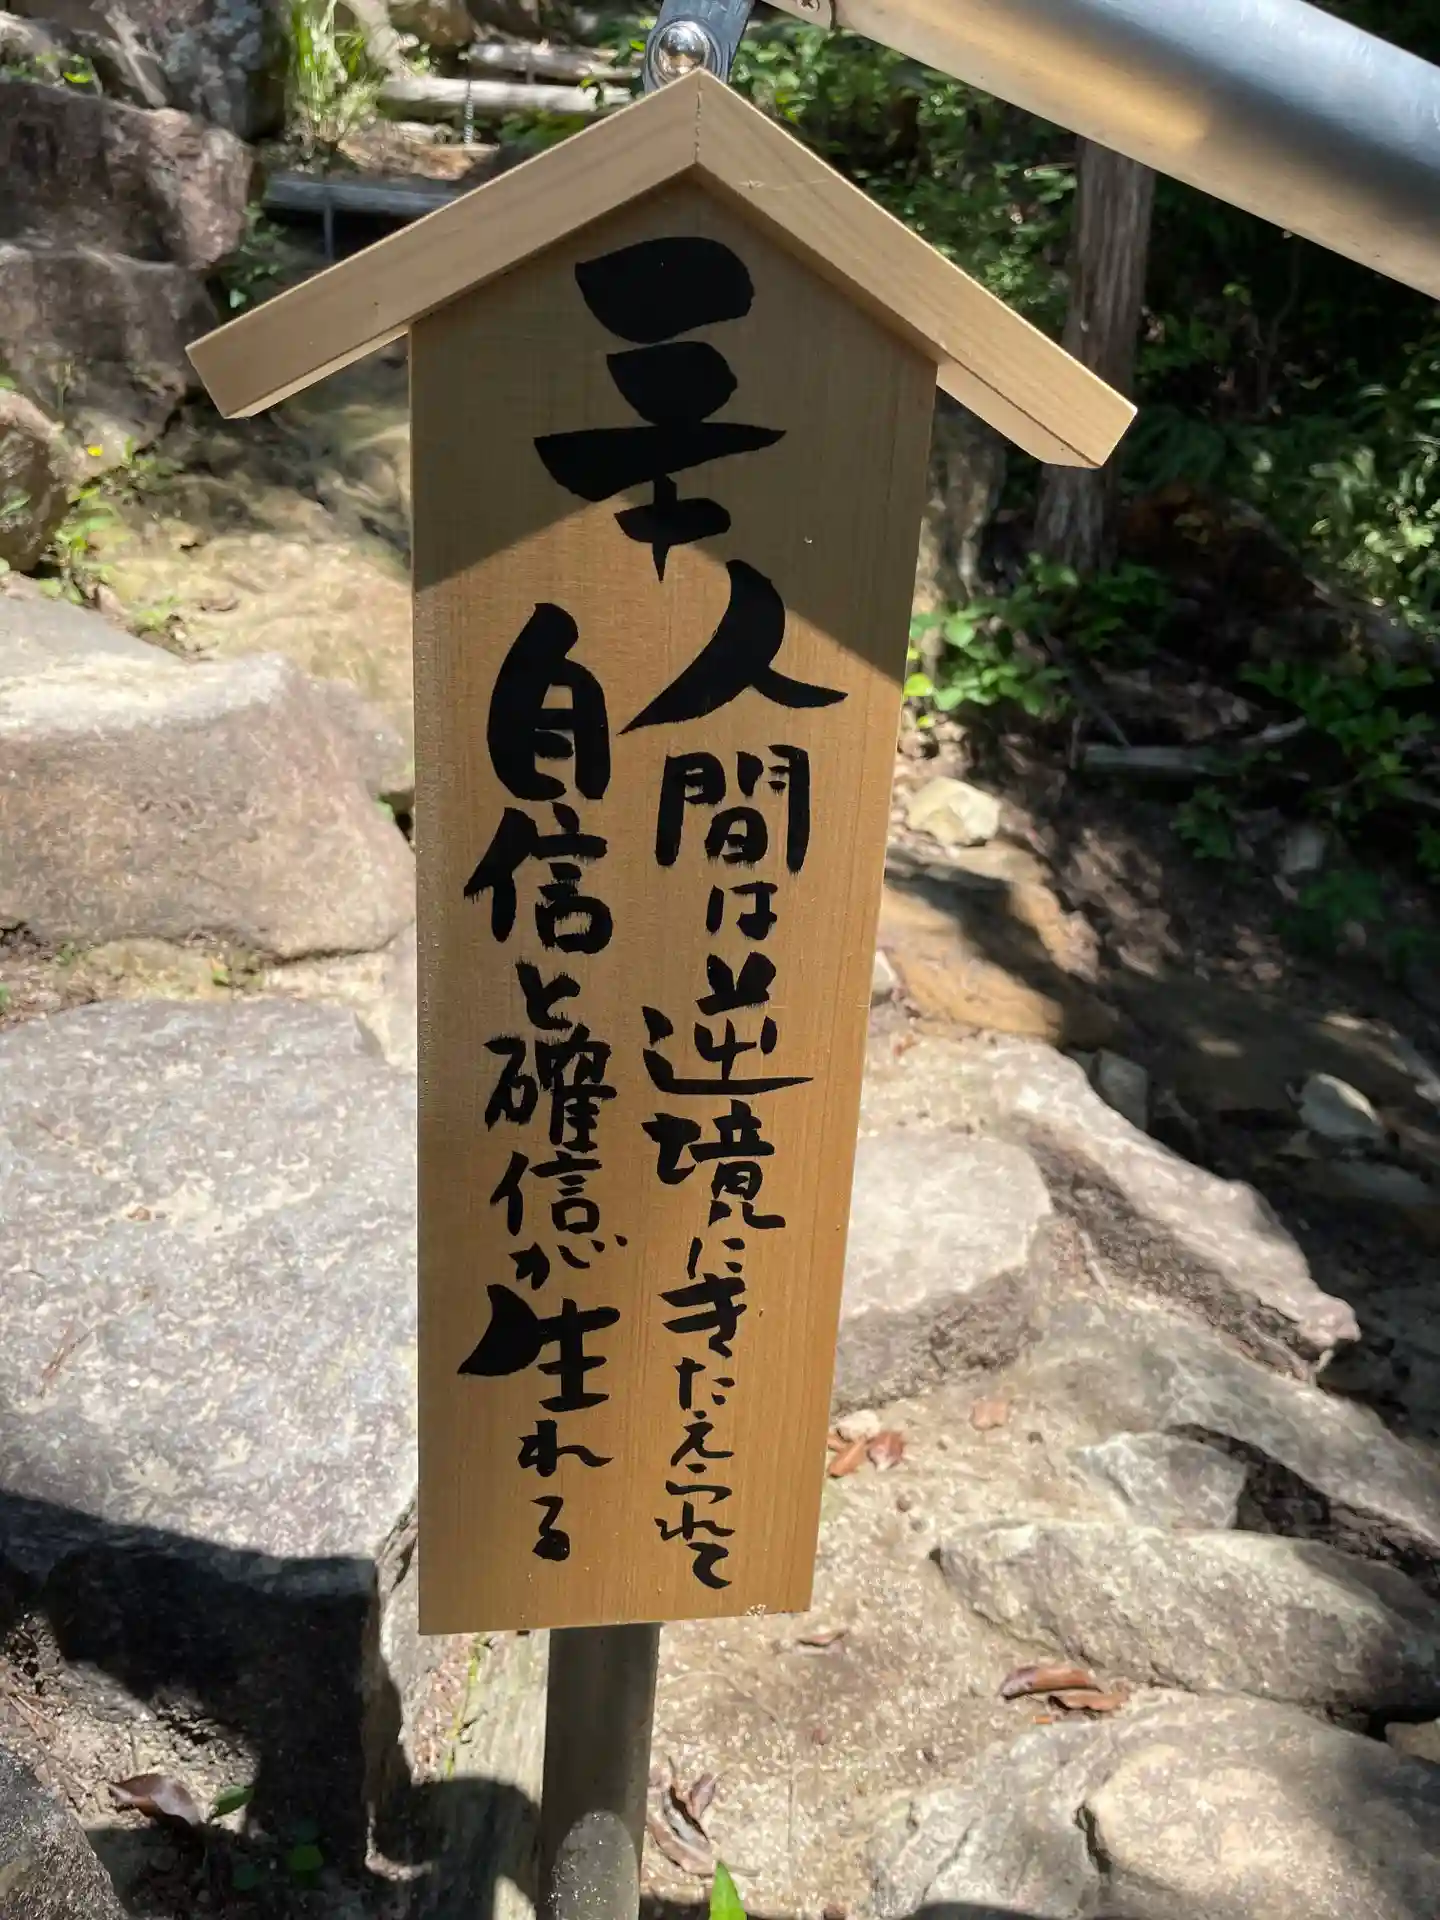 三十
人間は逆境にきたえられて
自信と確信が生れる